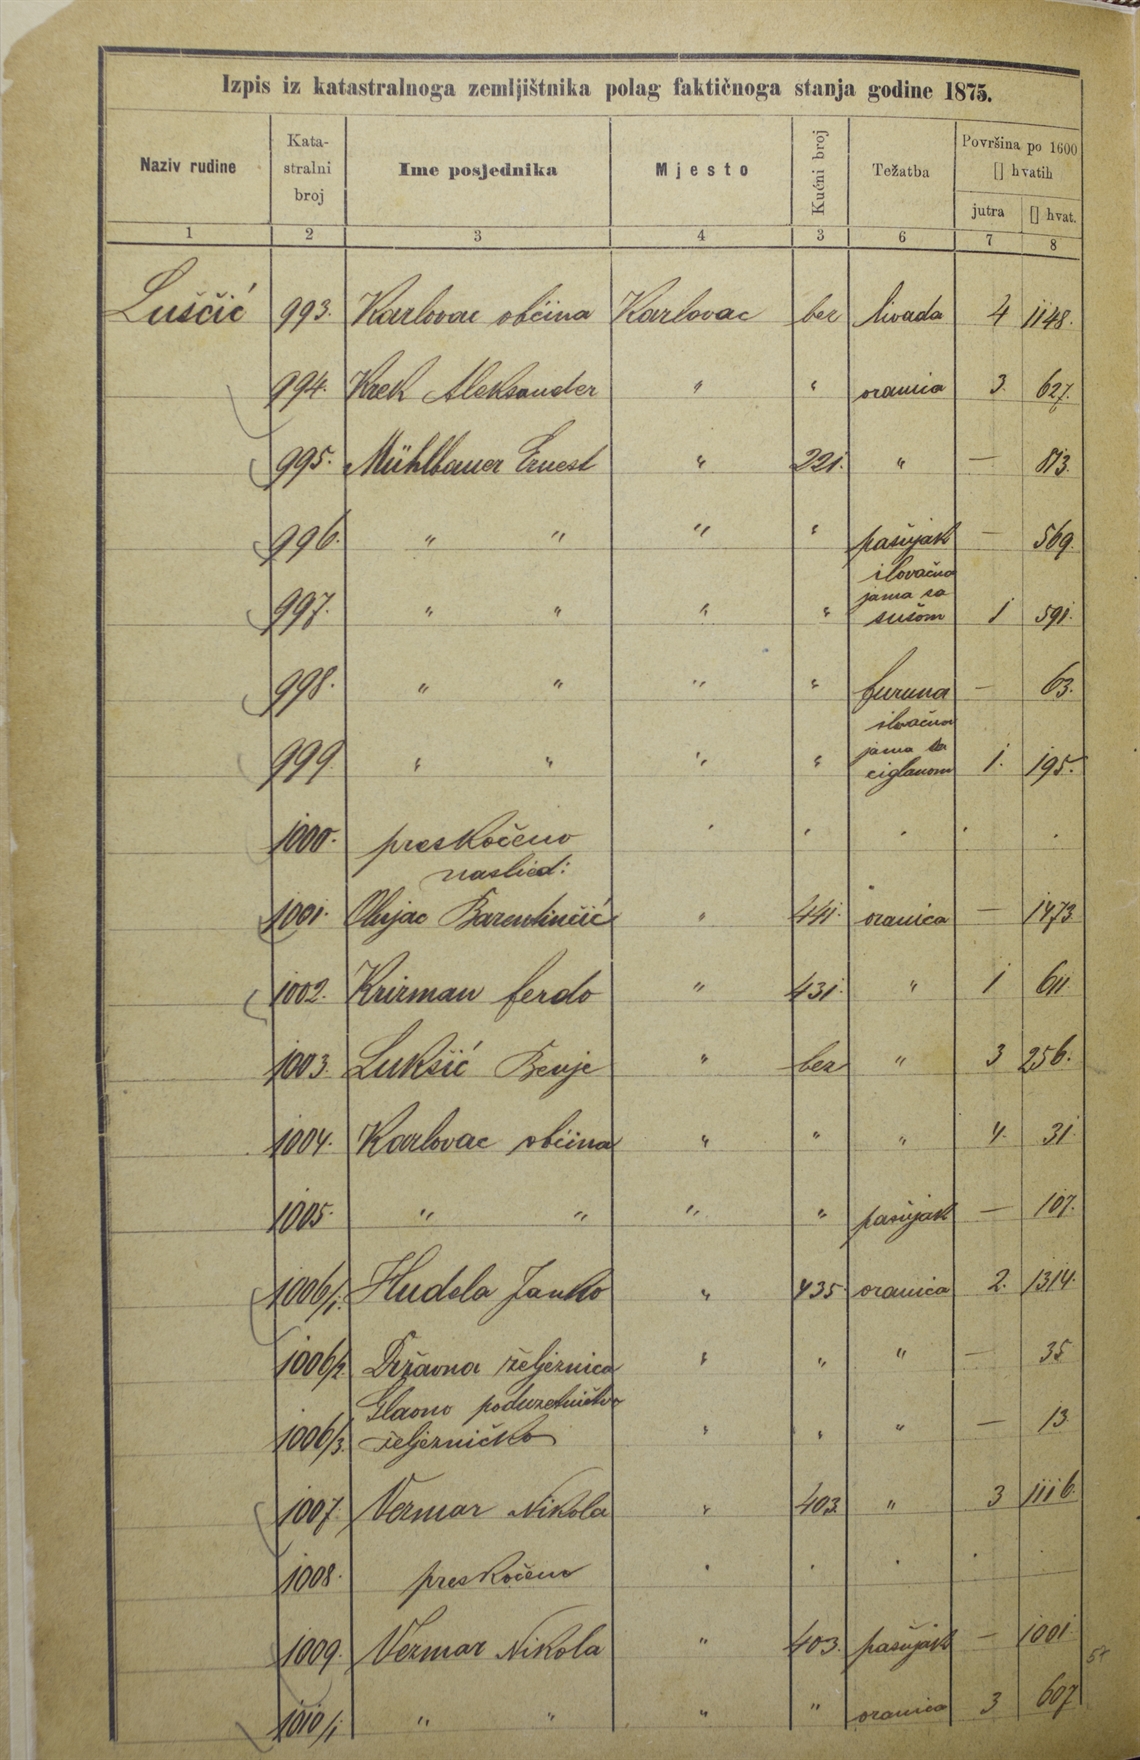 Izpis iz katastralnoga zemljištnika polag faktičnoga stanja godine 1875.
Naziv rudine
Kata-
stralni
broj
Ime posjednika
Mjesto
Kućni broj
Težatba
Površina po 1600
[] hvatih
jutra [] hvat.
1 2 3 4 3 6 7 8
Luščić 993. Karlovac občina Karlovac bez livada 4 1148.
994. Krek Aleksander " " oranica 3. 627.
995. Mühlbauer Ernest " 221. " — 813.
996. " " " " pašnjak — 569.
ilovačna
jama sa
997. " " " " sušom 1 591.
998. " " " " furuna — 63.
ilovačna
jama sa
999 " " " " ciglanom 1. 195.
1000. preskočeno
naslied:
1001. " 441. oranica — 1473
1002. Krizman ferdo " 431. " 1 611
1003. Lukšić " bez " 3 256.
1004. Karlovac občina " " " 4. 31
1005. " " " " pašnjak — 107.
1006/1. Hudela Janko " 435 oranica 2. 1314.
1006/2. Državna željeznica " " " — 35
Glavno poduzetničtvo
1006/3. željezničko " " " — 13
1007. Vezmar Nikola " 403. " 3 1116.
1008. preskočeno
1009. Vezmar Nikola " 403. pašnjak — 1001
1010/1 " " " " oranica 3 607